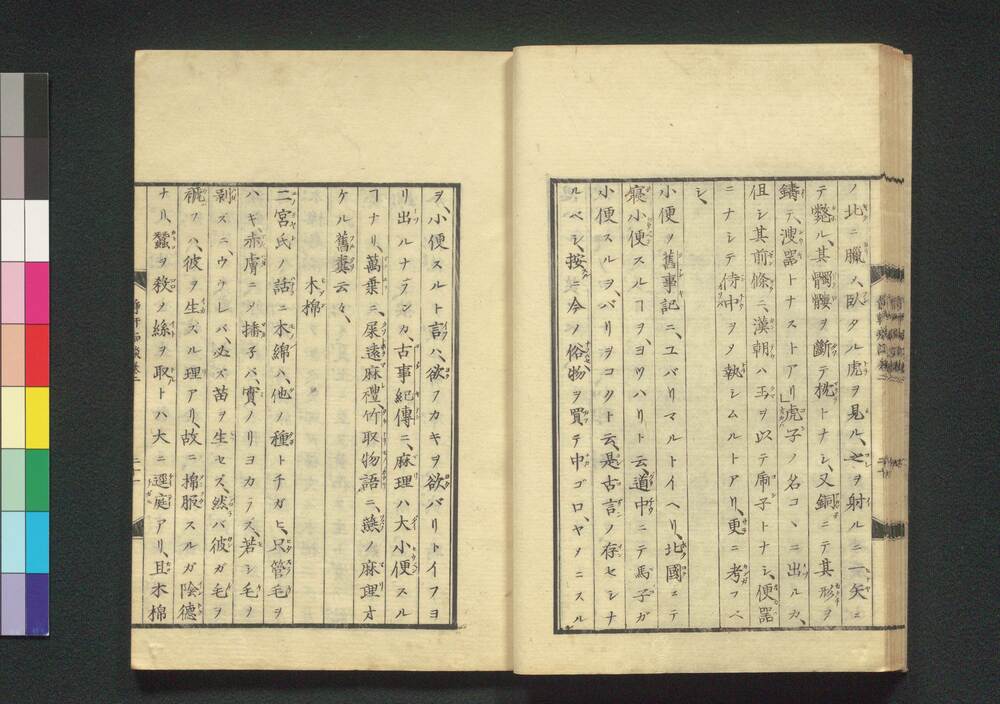 ノ北ニ臘ス、臥タル虎ヲ見ル、之ヲ射ルニ一矢ニ
テ斃ル、其髑髏ヲ斷テ枕トナシ、又銅ニテ其形ヲ
鑄テ、溲器トナストアリ」虎子ノ名コヽニ出ルカ、
但シ其前條ニ、漢朝ハ玉ヲ以テ虎子トナシ、便器
ニナシテ侍中ヲメ執シムルトアリ、更ニ考フベ
シ、
小便ヲ舊事記ニ、ユバリマルトイヘリ、北國ニテ
寢小便スルヿヲ、ヨツハリト云、道中ニテ馬子ガ
小便スルヲ、バリヲコクト云、是古言ノ存セシナ
ルベシ、按ニ今ノ俗、物ヲ買テ中ゴロ、ヤメニスル
ヲ、小便スルト言ハ、欲フカキヲ欲バリトイフヨ
リ出ルナランカ、古事紀傳ニ、麻理ハ大小便スル
ヿナリ、萬葉ニ、屎遠麻禮、竹取物語ニ、燕ノ麻理オ
ケル舊糞云々、
木棉
二宮氏ノ話ニ木綿ハ、他ノ種トチガヒ、只管毛ヲ
ハギ、赤膚ニメ播子バ、實ノリヨカラズ、若シ毛ノ
剥ズニ、ウウレバ、必ズ苗ヲ生セズ、然バ彼ガ毛ヲ
褫フハ、彼ヲ生ズル理アリ、故ニ棉服スルガ陰德
ナリ、蠶ヲ殺メ絲ヲ取トハ大ニ逕庭アリ、且木棉